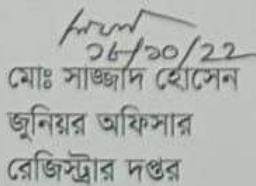 ২৬/১০/২২
মোঃ সাজ্জাদ হোসেন
জুনিয়র অফিসার
রেজিস্ট্রার দপ্তর